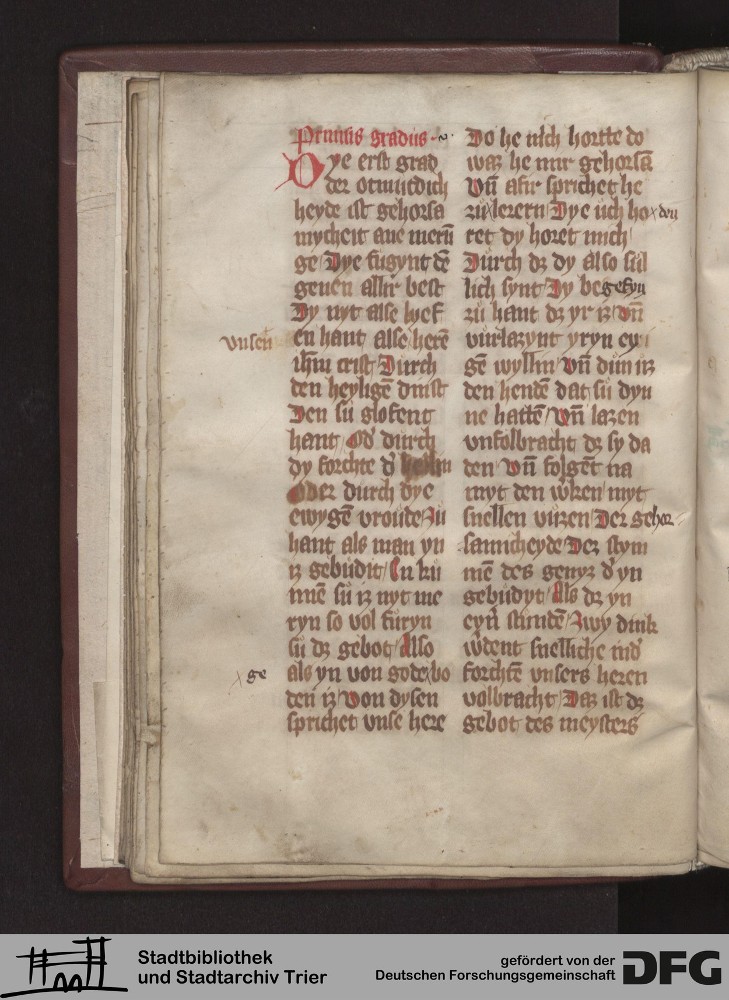 Primus gradus
Dye erst grad
der otmudich
heyde ist gehorsa
mycheit ane merū
ge Dye fugynt dē
genen allir best
Dy nyt alse lyef
vnsen
en hant alse herē
ihm crist Durch
den heyligē dinst
Den sü glofent
hant Od' durch
dy forchte d'
Oder durch dye
ewygē vroude zu
hant als man yn
iz gebudit In kü
nnē sü iz nyt me
ryn so vol füryn
sü dz gebot Also
als yn von gode bo
ge
den iz Von dysen
sprichet vnse here
Do he mich hortte do
waz he mir gehorsā
Vn̄ afir sprichet he
zü lerern Dye üch ho
den
ret dy horet mich
Durch dz dy also sül
lich synt Dy begebyn
zü hant dz yr iz vn̄
vürlazynt yryn ey
gē wyllin Vn̄ dün uz
den hendē dat sü dyn
ne hattē Vn̄ lazen
vnfolbracht dz sy da
den Vn̄ folgēt na
myt den w'ken myt
snellen vüzen Der gehor
samicheyde Dez stym
mē des genyz d' yn
gebüdyt Als dz yn
eyn' stündē Zwy dink
w'dent snelliche ind'
forchtē vnsers heren
volbracht Daz ist dz
gebot des meysters
Stadtbibliothek
und Stadtarchiv Trier
gefördert von der
Deutschen Forschungsgemeinschaft
DFG